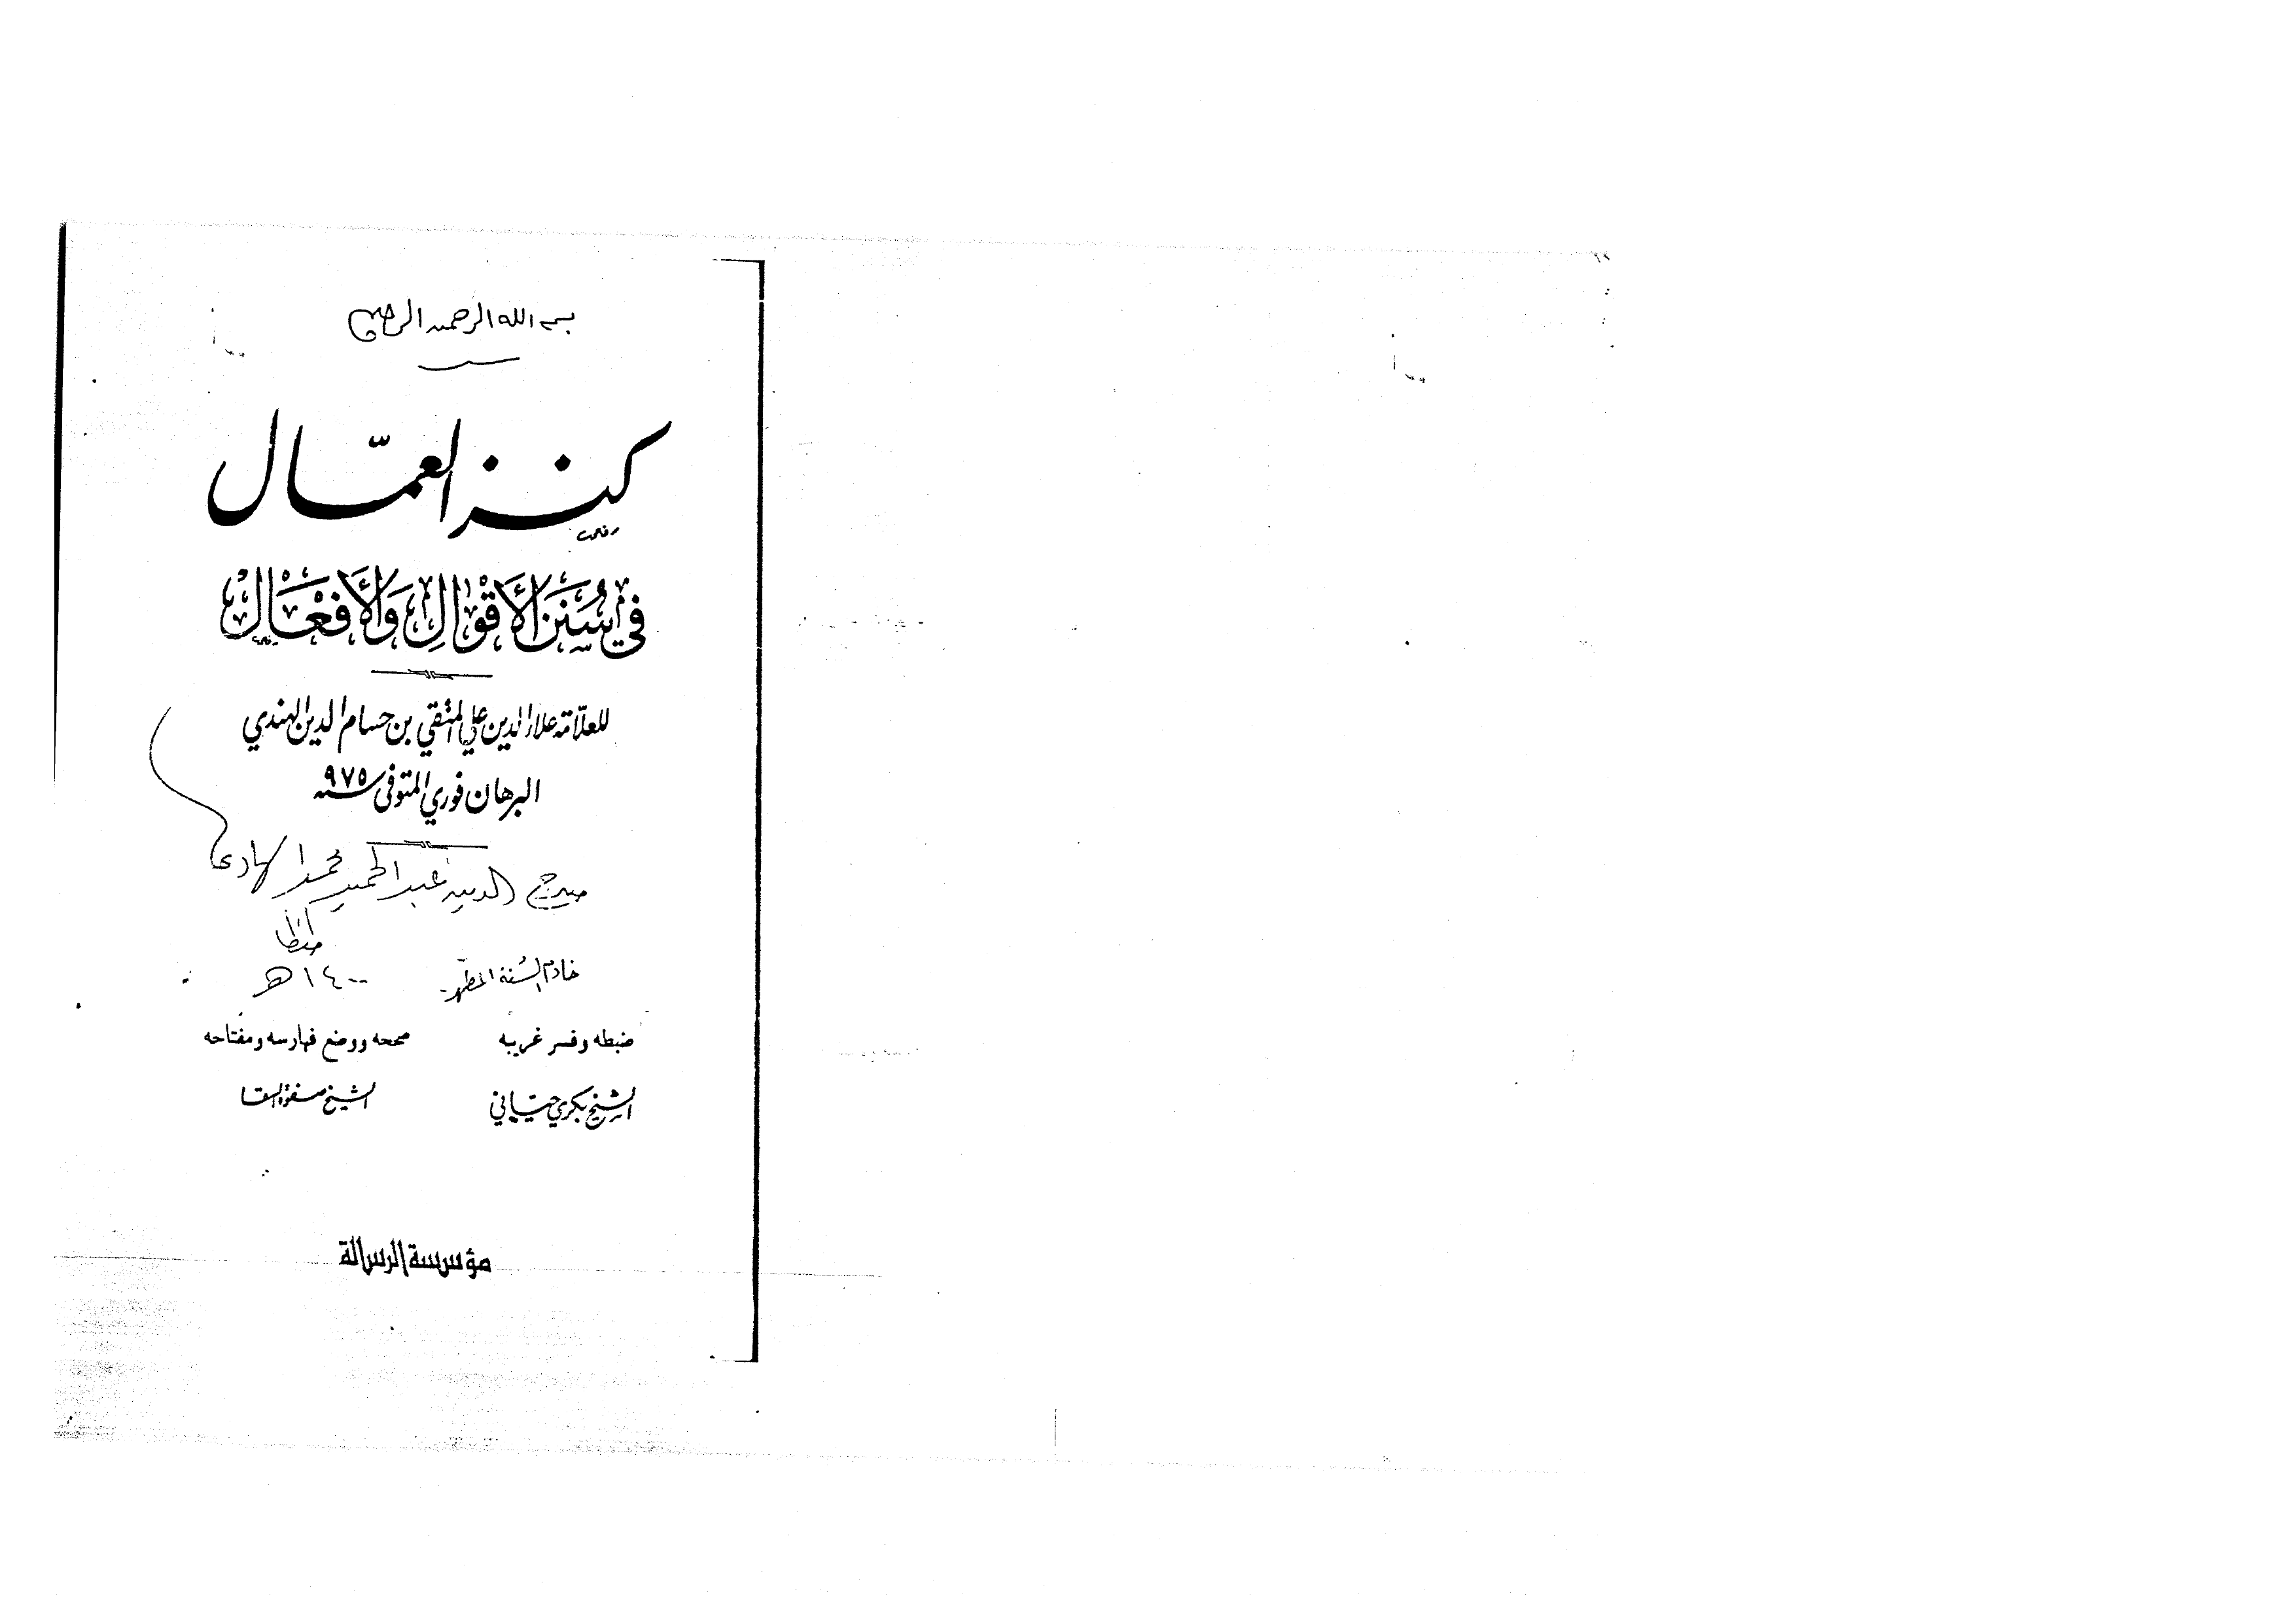 بسم الله الرحمن الرحيم
كنز العمّال
في سُنَنِ الأَقْوَالِ وَالأَفْعَالِ
للعلّامة علاء الدين علي المتقي بن حسام الدين الهندي
البرهان فوري المتوفى سنة ٩٧٥
الدين عبد الحميد محمد الهادي
طنطا
خادم السُنة المطهّرة ١٤٠٠ هـ
ضبطه وفسر غريبه
صححه ووضع فهارسه ومفتاحه
الشيخ بكري حيّاني
الشيخ صفوة السقا
مؤسسة الرسالة